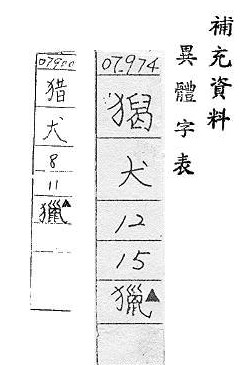 補充資料
異體字表
07974
犬
12
15
獵▲
猎
犬
8
11
獵▲